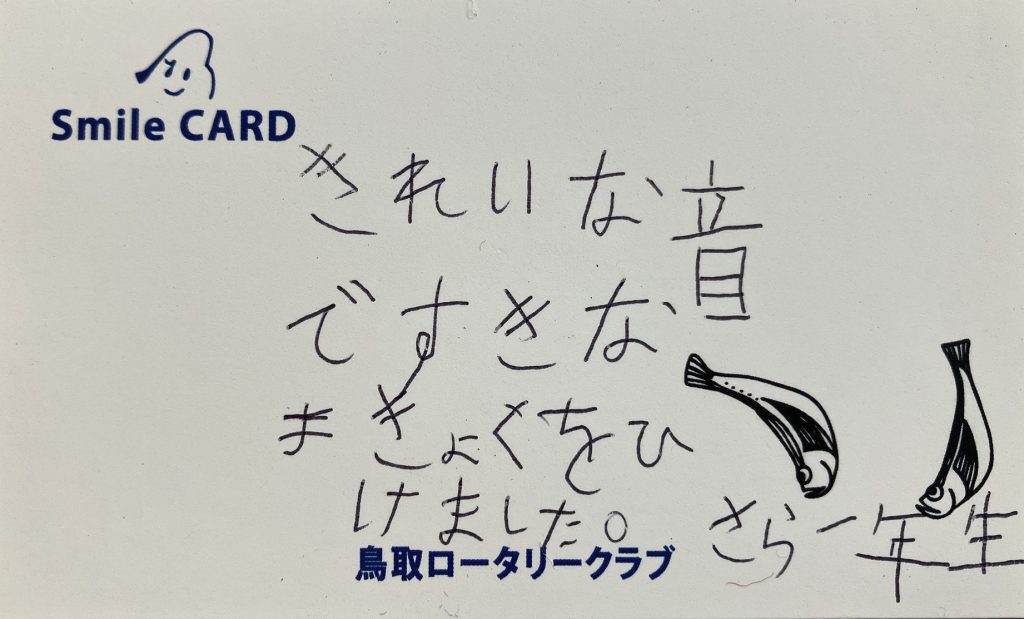 Smile CARD
きれいな音
ですきな
きょくをひ
けました。
さら一年生
鳥取ロータリークラブ